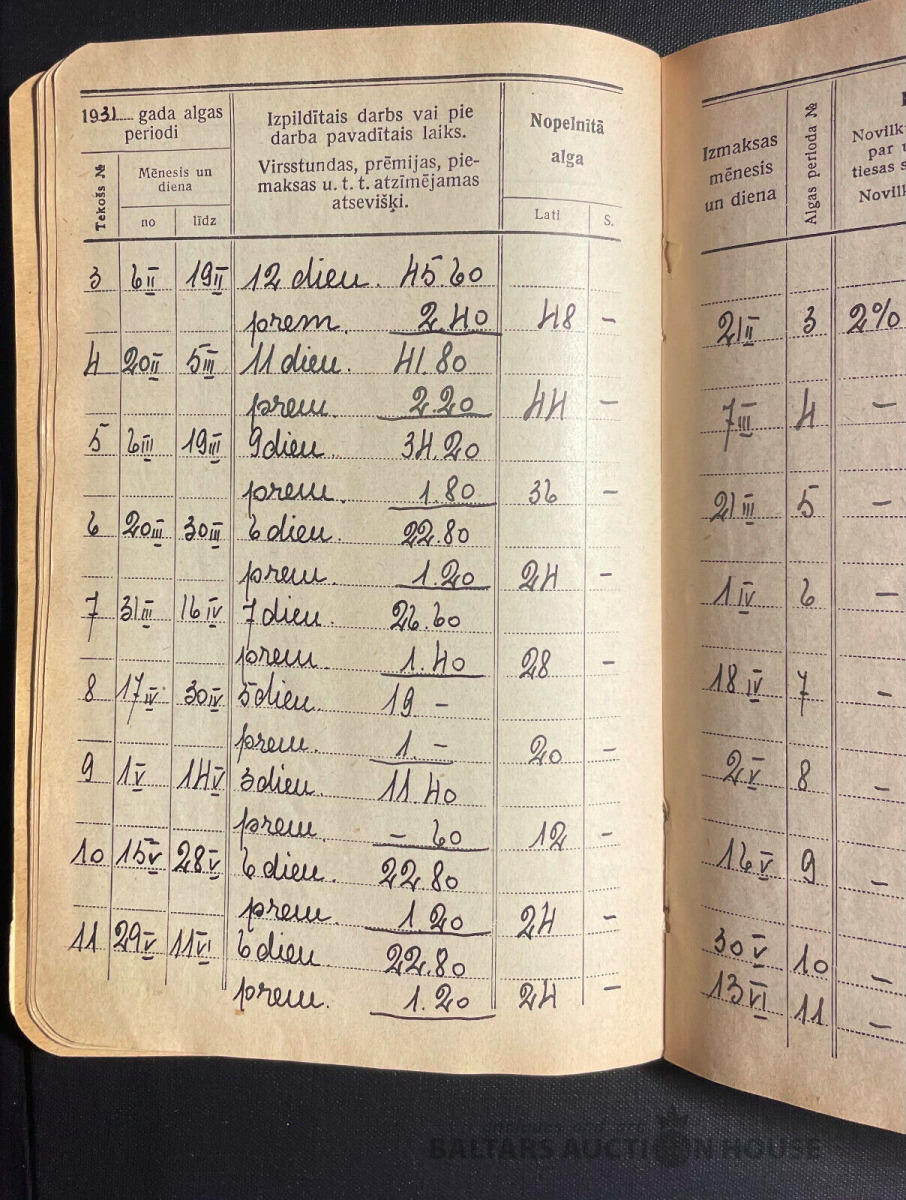 1931 gada algas periodi
Tekošs №
Mēnesis un diena
no
līdz
Izpildītais darbs vai pie
darba pavadītais laiks.
Virsstundas, prēmijas, pie-
maksas u. t. t. atzīmējamas
atsevišķi.
Nopelnītā
alga
Lati
S.
3 6II 19II 12 dien. 45.60
prem. 2.40 48 –
4 20II 5III 11 dien. 41.80
prem. 2.20 44 –
5 6III 19III 9 dien. 34.20
prem. 1.80 36 –
6 20III 30III 6 dien. 22.80
prem. 1.20 24 –
7 31III 16IV 7 dien. 26.60
prem. 1.40 28 –
8 17IV 30IV 5 dien. 19 –
prem. 1. – 20 –
9 1V 14V 3 dien. 11 40
prem. – 60 12 –
10 15V 28V 6 dien. 22.80
prem. 1.20 24 –
11 29V 11VI 6 dien. 22.80
prem. 1.20 24 –
Izmaksas
mēnesis
un diena
Algas perioda №
Novilk
par u
tiesas s
Novilk
21II 3 2%
7III 4 –
21III 5 –
1IV 6 –
18IV 7 –
2V 8 –
16V 9 –
30V 10 –
13VI 11 –
BALTARS AUCTION HOUSE